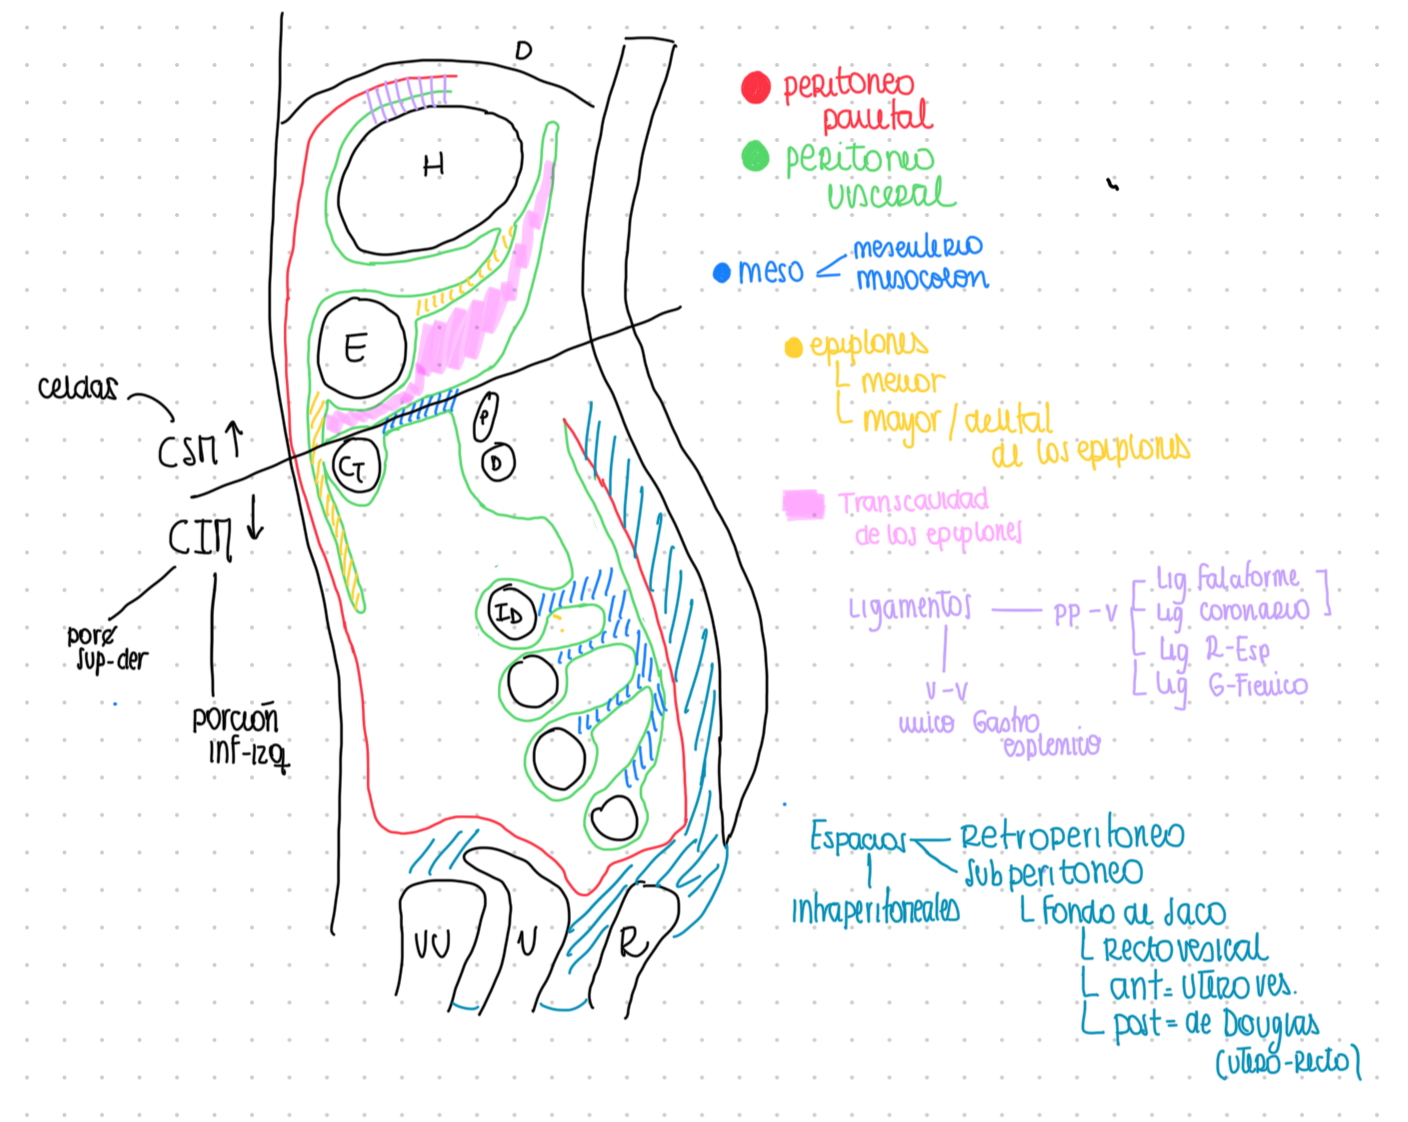 D
H
E
P
D
CT
ID
VU
U
R
celdas
CSM ↑
CIM ↓
porc
sup-der
porción
inf-izq
peritoneo
parietal
peritoneo
visceral
meso
mesenterio
mesocolon
epiplones
menor
mayor / delantal
de los epiplones
Transcavidad
de los epiplones
Ligamentos
pp-v
Lig Falciforme
Lig coronario
Lig R-Esp
Lig G-Frenico
v-v
unico Gastro
esplenico
Espacios
Retroperitoneo
Subperitoneo
intraperitoneales
Fondo de saco
Rectovesical
ant= uteroves.
post= de Douglas
(utero-recto)